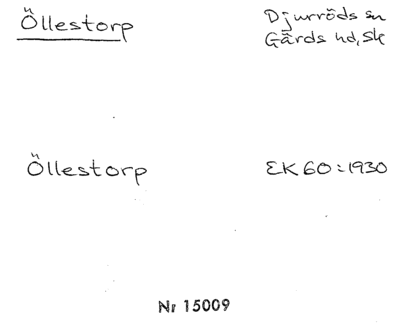 Öllestorp
Djurröds sn
Gärds hd, Sk
Öllestorp
EK 60:1930
Nr 15009